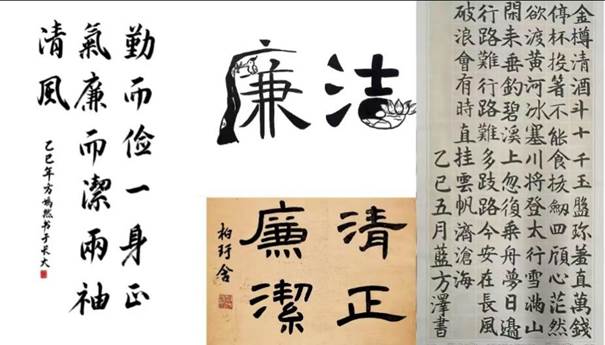 勤而俭一身正
氣廉而潔兩袖
清风
乙巳年方嫣然书于长大
廉洁
清正
廉潔
金樽清酒斗十千玉盤珎羞直萬錢
停杯投箸不能食拔劒四顧心茫然
欲渡黃河冰塞川將登太行雪滿山
閑来垂釣碧溪上忽復乘舟夢日邊
行路難行路難多歧路今安在長風
破浪會有時直挂雲帆濟滄海
乙巳五月藍方澤書